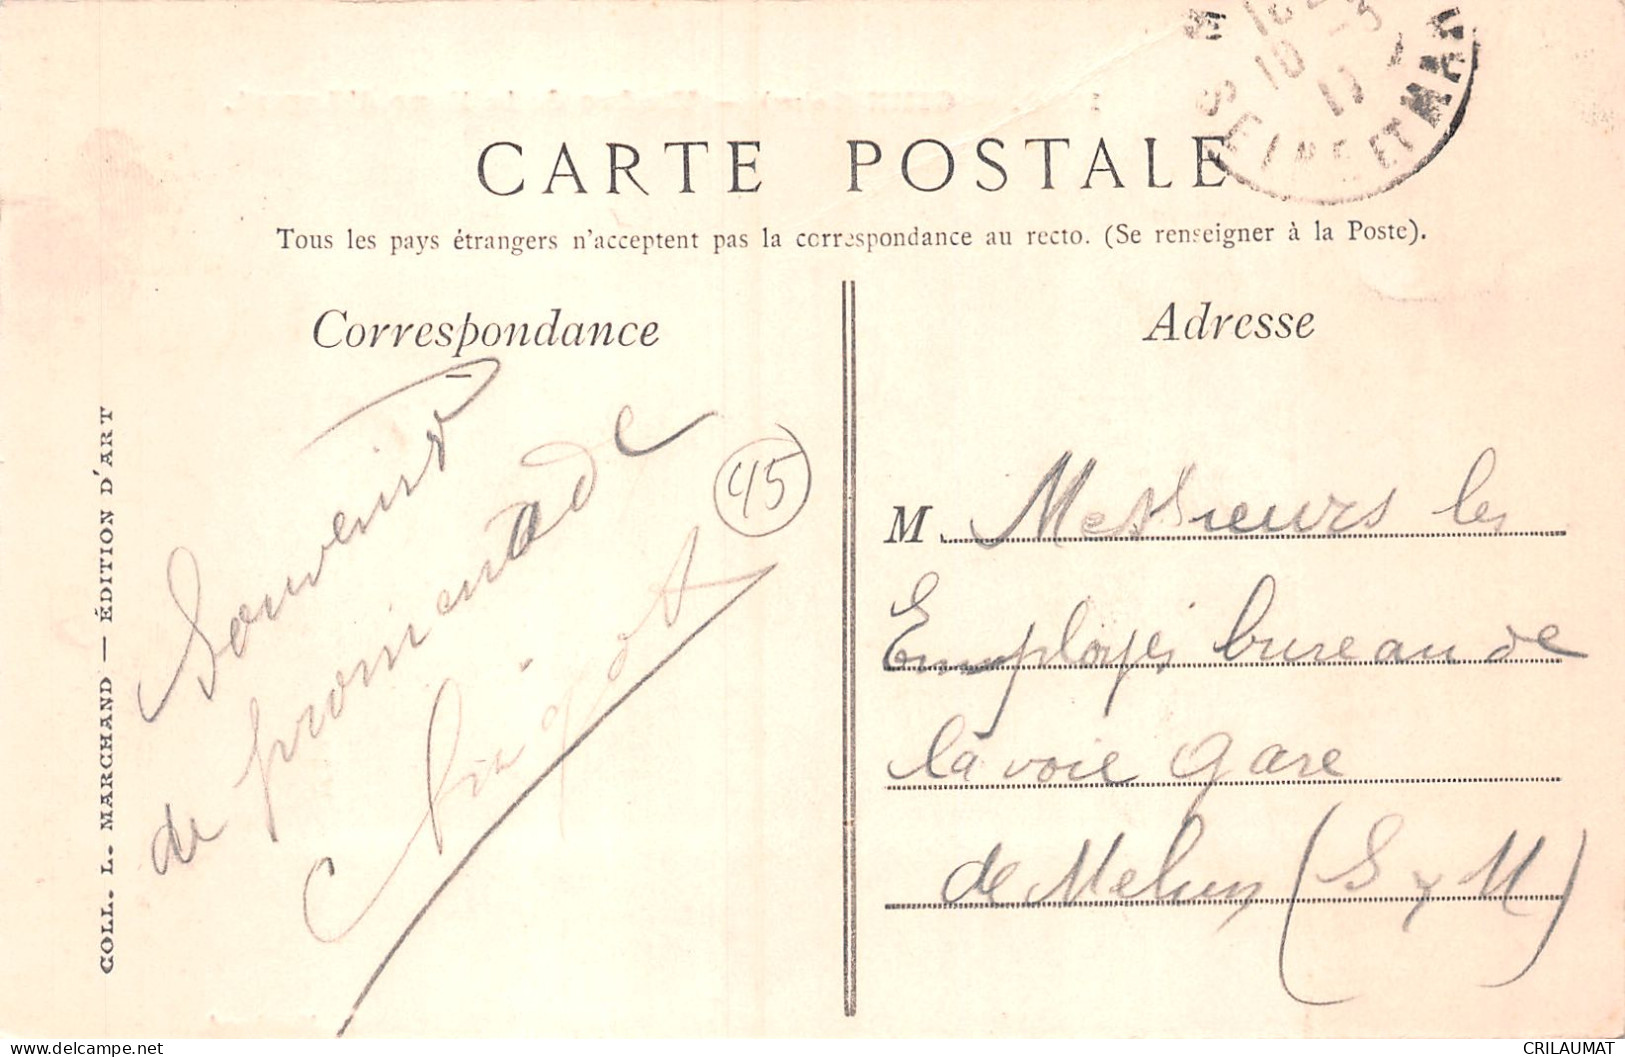 CARTE POSTALE
Tous les pays étrangers n'acceptent pas la correspondance au recto. (Se renseigner à la Poste).
Correspondance
Adresse
SEINE ET MAR
10 -3
11
COLL. L. MARCHAND — ÉDITION D'ART
Souvenir
de promenade
45
M. Messieurs les
Employés bureau de
la voie gare
de Melun (S & M)
delcampe.net
CRILAUMAT